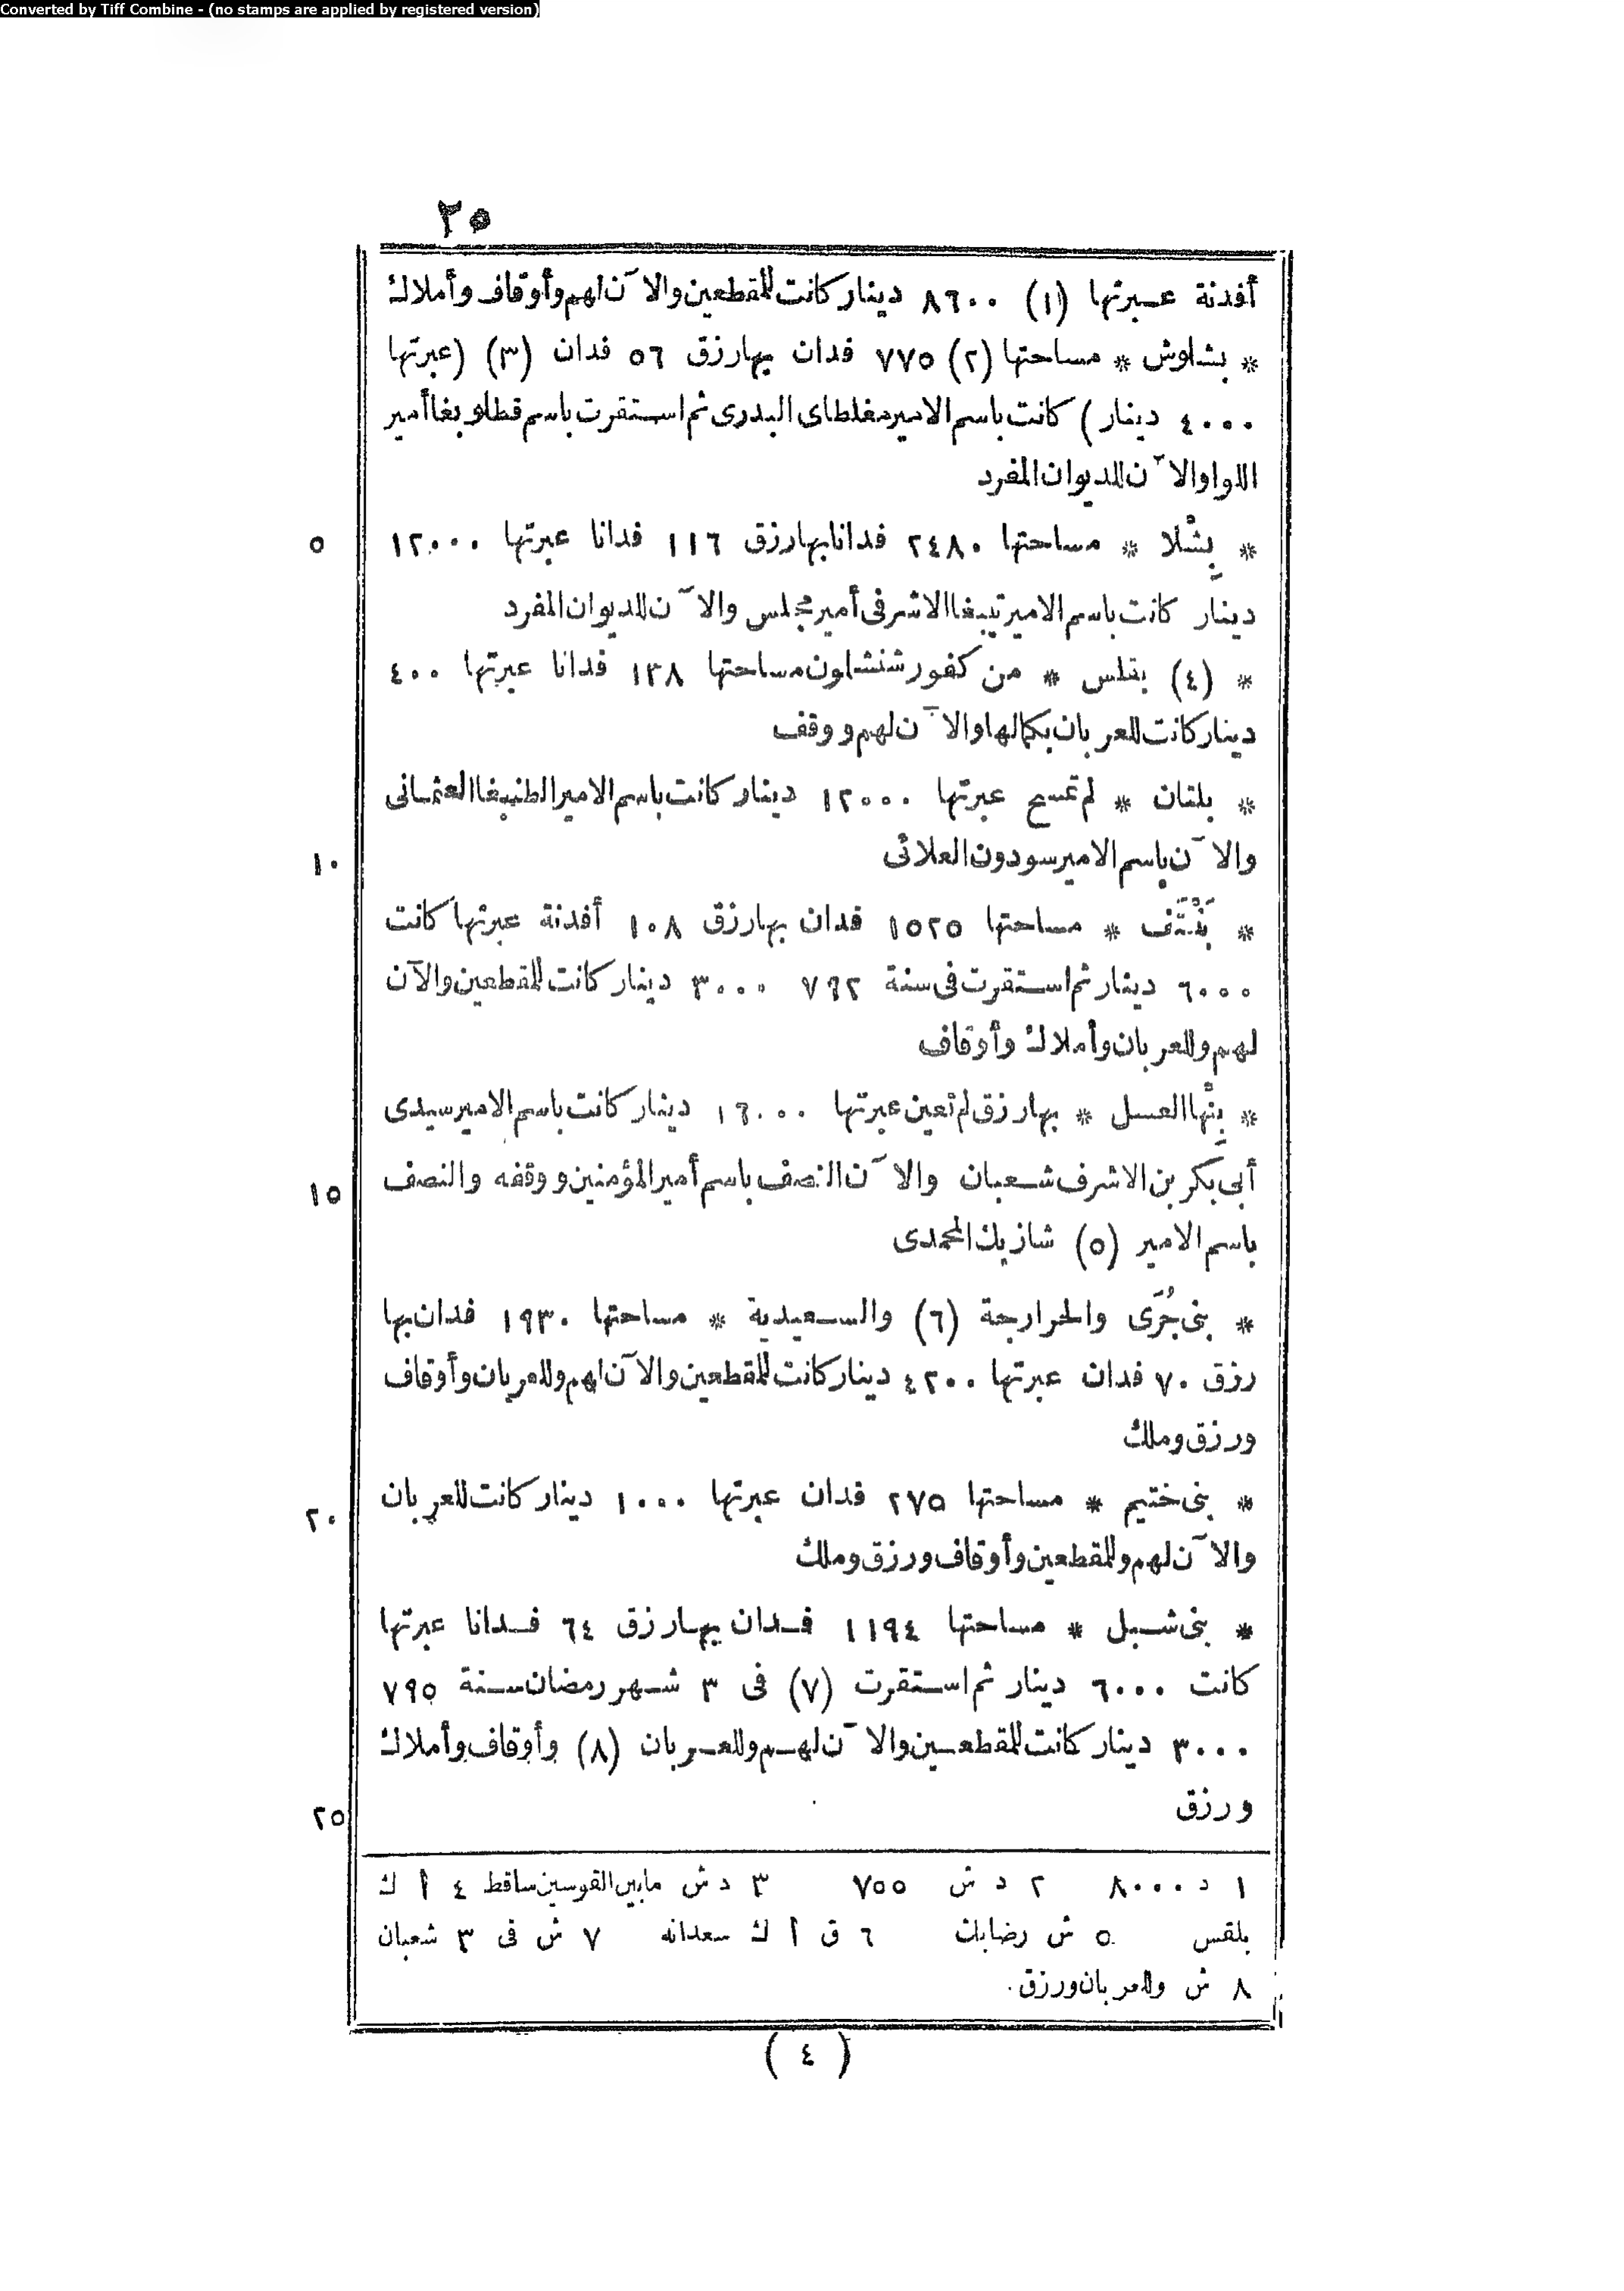 Converted by Tiff Combine - (no stamps are applied by registered version)
٢٥
أفدنة عبرتها (١) ٨٦٠٠ دينار كانت للمقطعين والآن لهم وأوقاف وأملاك
* بشلوش * مساحتها (٢) ٧٧٥ فدان بها رزق ٥٦ فدان (٣) (عبرتها
٤٠٠٠ دينار) كانت باسم الامير مغلطاى البدرى ثم استقرت باسم قطلوبغا أمير
اللوا والآن للديوان المفرد
٥ * بِشْلا * مساحتها ٢٤٨٠ فدانا بها رزق ١١٦ فدانا عبرتها ١٢٠٠٠
دينار كانت باسم الامير تيبغا الاشرفى أمير مجلس والآن للديوان المفرد
* (٤) بقلس * من كفور شنشلون مساحتها ١٣٨ فدانا عبرتها ٤٠٠
دينار كانت للعربان بكمالها والآن لهم ووقف
* بلتان * لم تمسح عبرتها ١٢٠٠٠ دينار كانت باسم الامير الطنبغا العثمانى
١٠ والآن باسم الامير سودون العلائى
* مساحتها ١٥٢٥ فدان بها رزق ١٠٨ أفدنة عبرتها كانت
٦٠٠٠ دينار ثم استقرت فى سنة ٧٩٢ ٣٠٠٠ دينار كانت للمقطعين والآن
لهم وللعربان وأملاك وأوقاف
* بِنْها العسل * بها رزق لم تعين عبرتها ١٦٠٠٠ دينار كانت باسم الامير سيدى
١٥ أبى بكر بن الاشرف شعبان والآن النصف باسم أمير المؤمنين ووقفه والنصف
باسم الامير (٥) شاز بك المحمدى
* بنى جُرَى والخرارجة (٦) والسعيدية * مساحتها ١٩٣٠ فدان بها
رزق ٧٠ فدان عبرتها ٤٢٠٠ دينار كانت للمقطعين والآن لهم وللعربان وأوقاف
ورزق وملك
٢٠ * بنى ختيم * مساحتها ٢٧٥ فدان عبرتها ١٠٠٠ دينار كانت للعربان
والآن لهم وللمقطعين وأوقاف ورزق وملك
* بنى شبل * مساحتها ١١٩٤ فدان بها رزق ٦٤ فدانا عبرتها
كانت ٦٠٠٠ دينار ثم استقرت (٧) فى ٣ شهر رمضان سنة ٧٩٥
٣٠٠٠ دينار كانت للمقطعين والآن لهم وللعربان (٨) وأوقاف وأملاك
٢٥ ورزق
١ د ٨٠٠٠ ٢ د ش ٧٥٥ ٣ د ش مابين القوسين ساقط ٤ أ ك
بلقس ٥ ش رضابك ٦ ق أ ك سعدانه ٧ ش فى ٣ شعبان
٨ ش وللعربان ورزق.
(٤)